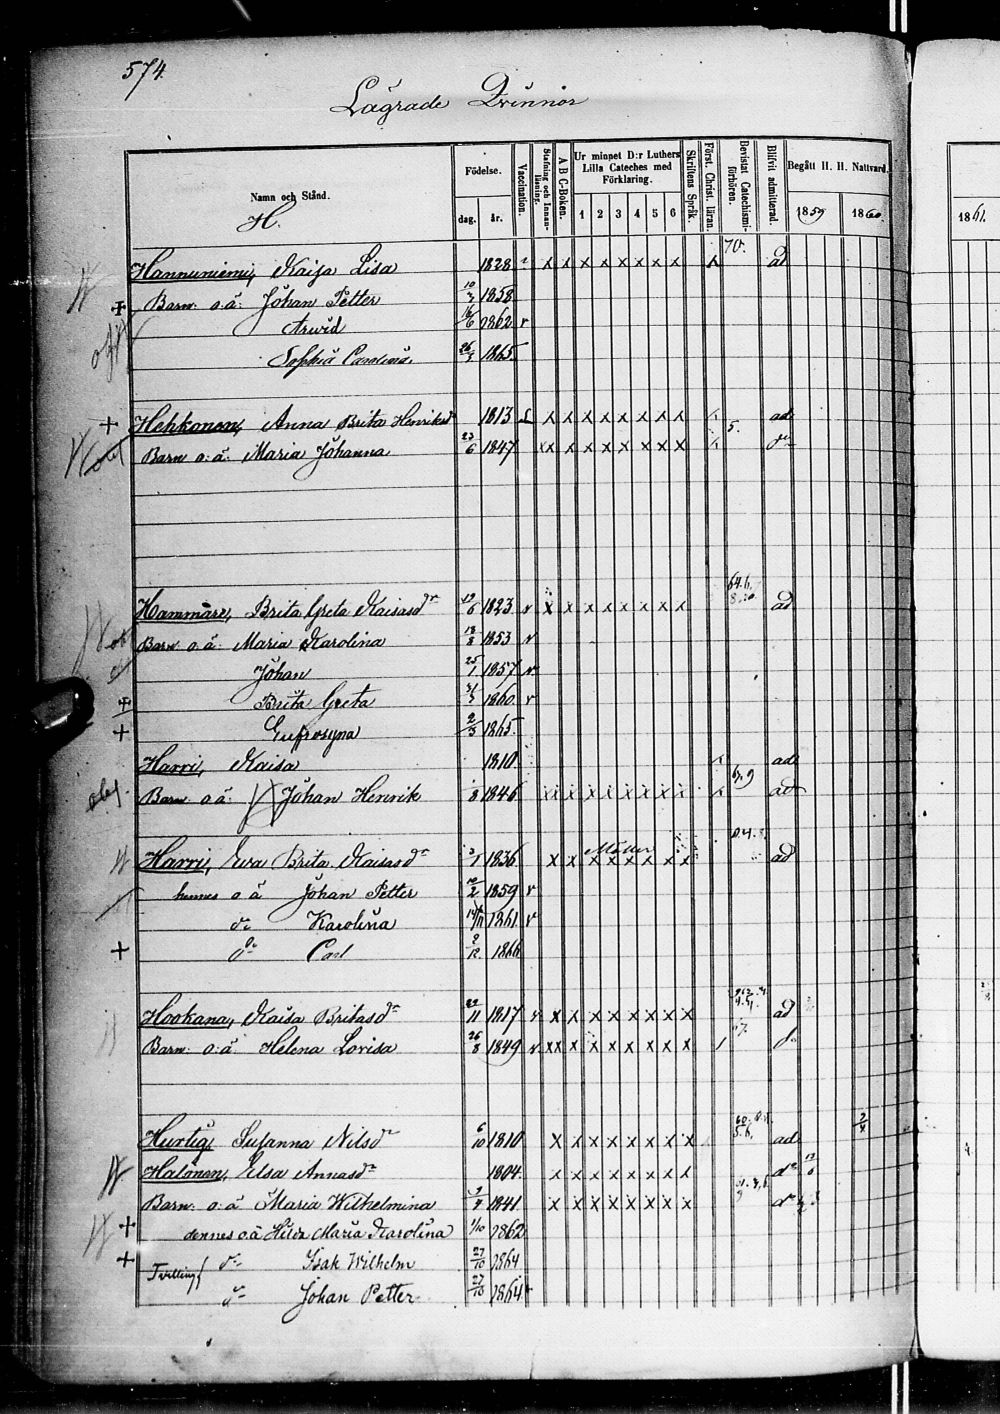 574.
Lägrade Qvinnor
Namn och Stånd.
H.
Födelse.
dag.
år.
Vaccination.
Stafning och Innanläsning.
A B C-Boken.
Ur minnet D:r Luthers Lilla Cateches med Förklaring.
1 2 3 4 5 6
Skriftens Språk.
Först. Christ. läran.
Bevistat Catechismiförhören.
Blifvit admitterad.
Begått H. H. Nattvard.
1859
1860
1861.
Hannuniemi, Kaisa Lisa 1828 x x x x x x x x x 70. ad
Barn o.ä: Johan Petter 10/3 1858
Arwid 16/6 1862 v
Sophia Carolina 26/3 1865
Hehkonen, Anna Brita Henriksdr 1813 x x x x x x x x ad
Barn o.ä: Maria Johanna 23/6 1847 xx x x x x x x x 5. do
Hammare, Brita Greta Kaisasdr 19/6 1823 v x x x x x x x x 64.6. ad
Barn o.ä: Maria Karolina 18/8 1853 v
Johan 25/1 1857 v
Brita Greta 31/3 1860. v
Eufrosyna 2/3 1865
Harri, Kaisa 1810 ad
Barn o.ä: Johan Henrik 8 1846 xx x x x x x x x ad
Harri, Ewa Brita Kaisasdr 1836 Möller x x x x x x x x ad
hennes o.ä Johan Petter 10/2 1859 v
do Karolina 14/11 1861 v
do Carl 2/12 1866
Hookana, Kaisa Britasdr 22/11 1817 v x x x x x x x x ad
Barn: o.ä Helena Lovisa 26/8 1849 v xx x x x x x x x
Hurtig, Susanna Nilsdr 6/10 1810 x x x x x x x x ad 2/4
Halonen, Elsa Annasdr 1804. x x x x x x x x do
Barn: o.ä Maria Wilhelmina 9/4 1841. x x x x x x x x do
dennes o.ä Hilda Maria Karolina 1/10 1862
Tvilling do Isak Wilhelm 27/10 1864
do Johan Petter 27/10 1864 v